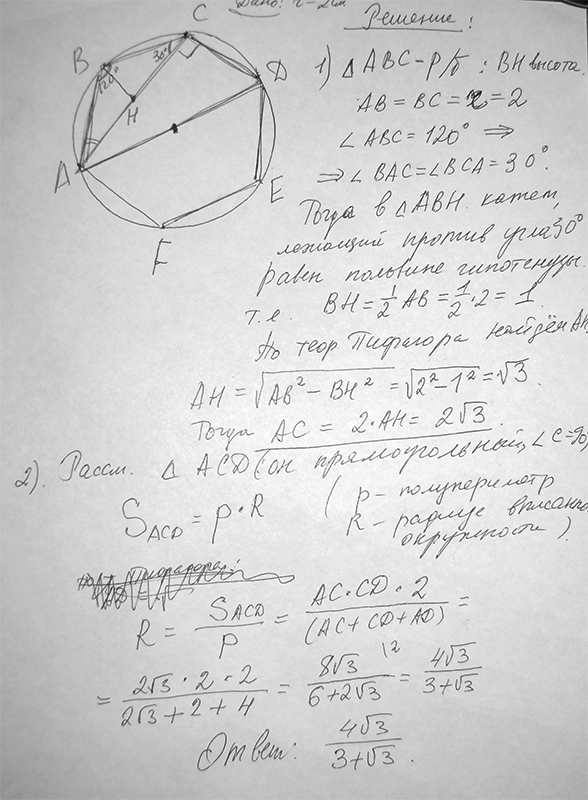 Дано: r = 2см
Решение:
C
B
D
A
E
F
H
120°
30°
1) △ ABC – р/б : BH высота
AB = BC = r = 2
∠ ABC = 120° ⇒
⇒ ∠ BAC = ∠ BCA = 30°.
Тогда в △ ABH катет,
лежащий против угла 30°
равен половине гипотенузы.
т.е. BH = 1/2 AB = 1/2 · 2 = 1.
По теор. Пифагора найдём AH
AH = √(AB² – BH²) = √(2² – 1²) = √3.
Тогда AC = 2·AH = 2√3.
2). Рассм. △ ACD (он прямоугольный, ∠ C=90°)
S_ACD = p · R ( p – полупериметр
R – радиус вписанно
окружности ).
R = S_ACD / p = AC·CD·2 / (AC + CD + AD) =
= 2√3 · 2 · 2 / 2√3 + 2 + 4 = 8√3 / 6 + 2√3 |2 = 4√3 / 3 + √3
Ответ: 4√3 / 3 + √3 .